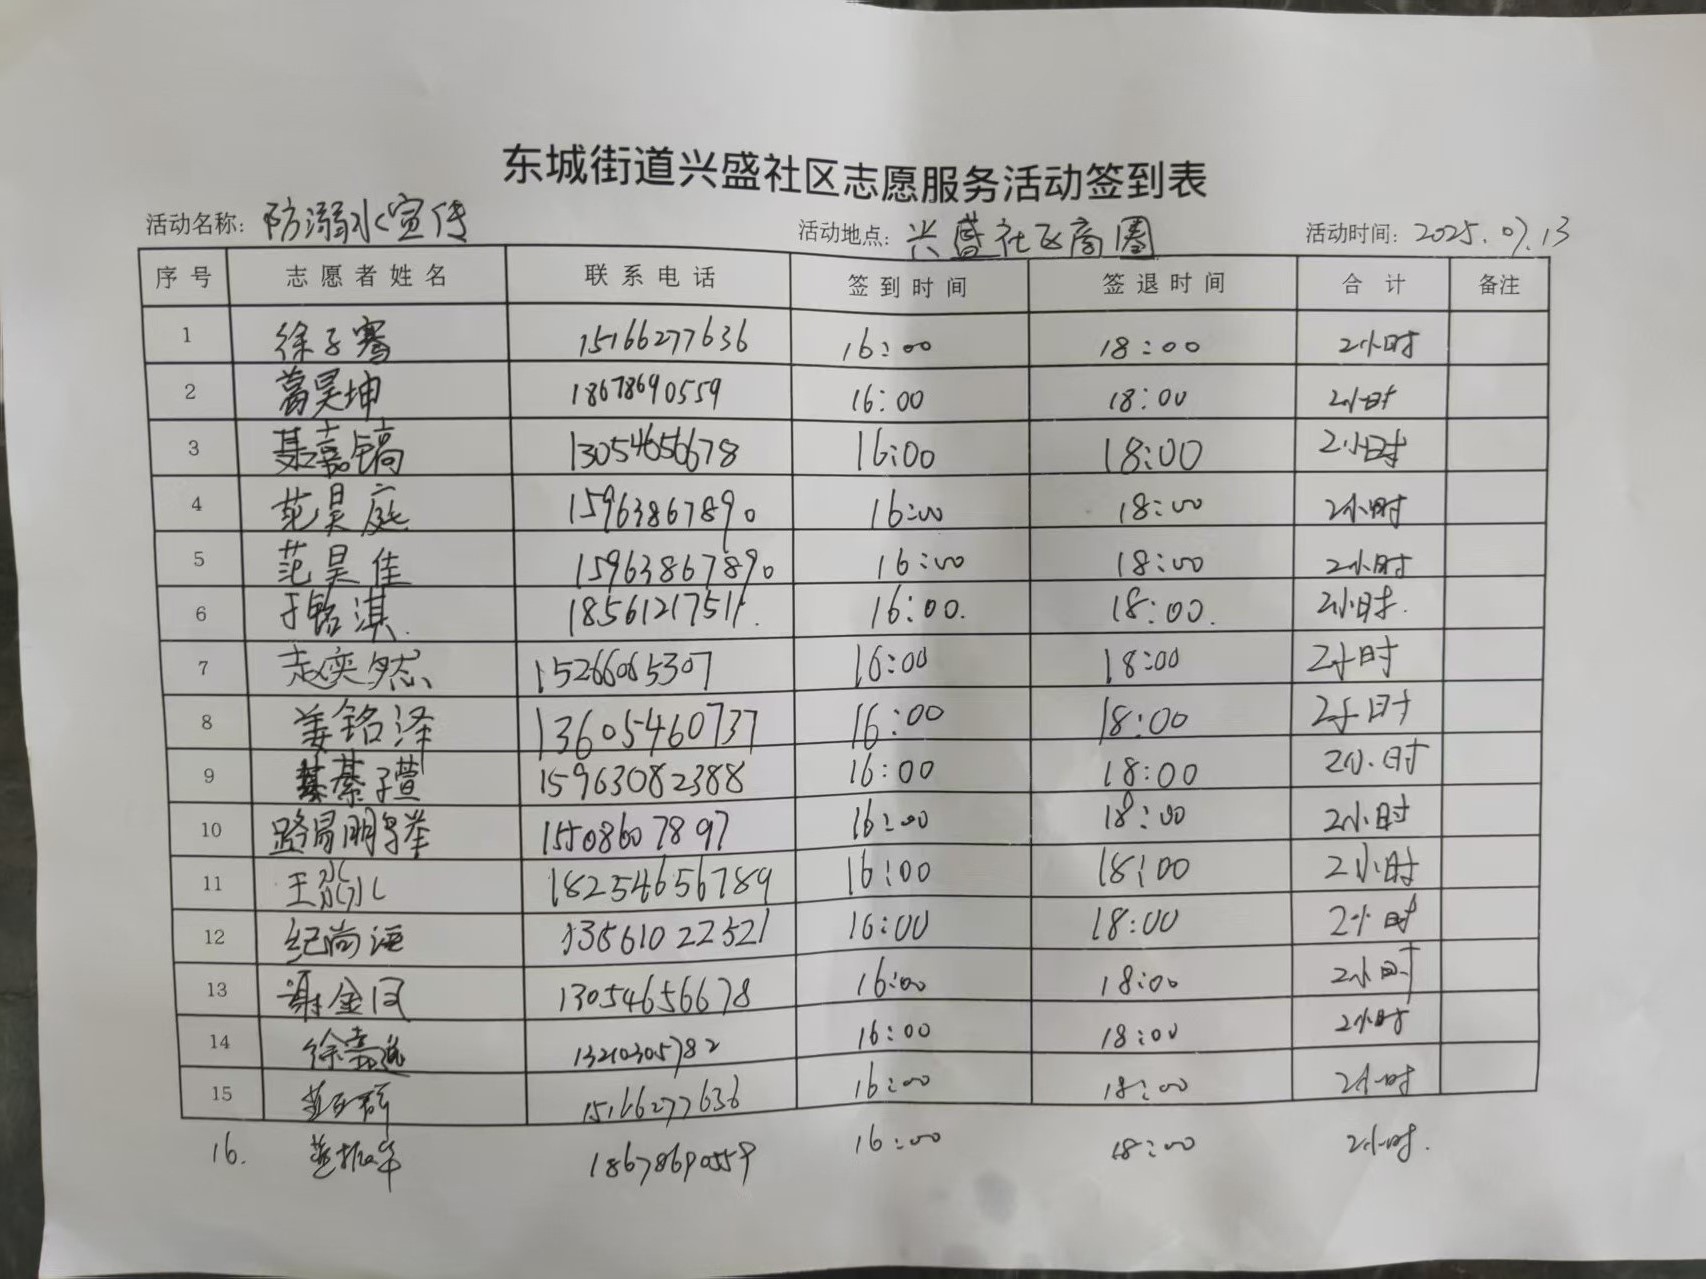 东城街道兴盛社区志愿服务活动签到表
活动名称: 防溺水宣传 活动地点: 兴盛社区商圈 活动时间: 2025.07.13
序号 志愿者姓名 联系电话 签到时间 签退时间 合计 备注
1 徐子骞 15166277636 16:00 18:00 2小时
2 葛昊坤 18678690559 16:00 18:00 2小时
3 綦嘉镐 13054656678 16:00 18:00 2小时
4 范昊庭 15963867890 16:00 18:00 2小时
5 范昊佳 15963867890 16:00 18:00 2小时
6 于铭淇 18561217511 16:00 18:00 2小时
7 赵奕然 15266065307 16:00 18:00 2小时
8 姜铭泽 13605460737 16:00 18:00 2小时
9 綦子萱 15963082388 16:00 18:00 2小时
10 15508607897 16:00 18:00 2小时
11 18254656789 16:00 18:00 2小时
12 纪尚 13561022521 16:00 18:00 2小时
13 谢金 13054656678 16:00 18:00 2小时
14 徐嘉 13210305782 16:00 18:00 2小时
15 15166277636 16:00 18:00 2小时
16. 18678690559 16:00 18:00 2小时.